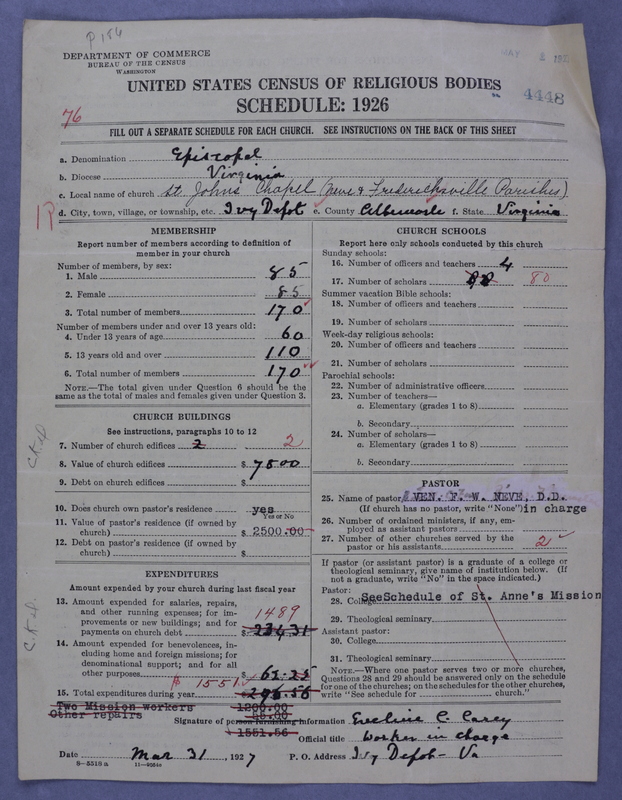 P 186
DEPARTMENT OF COMMERCE
BUREAU OF THE CENSUS
WASHINGTON
MAY
UNITED STATES CENSUS OF RELIGIOUS BODIES
4448
SCHEDULE: 1926
76
FILL OUT A SEPARATE SCHEDULE FOR EACH CHURCH. SEE INSTRUCTIONS ON THE BACK OF THIS SHEET
a. Denomination Episcopal
b. Diocese Virginia
c. Local name of church St Johns Chapel (Neve & Fredericksville Parishes)
d. City, town, village, or township, etc. Ivy Depot e. County Albemarle f. State Virginia
MEMBERSHIP
Report number of members according to definition of
member in your church
Number of members, by sex:
1. Male 85
2. Female 85
3. Total number of members 170
Number of members under and over 13 years old:
4. Under 13 years of age 60
5. 13 years old and over 110
6. Total number of members 170
NOTE.—The total given under Question 6 should be the
same as the total of males and females given under Question 3.
CHURCH BUILDINGS
See instructions, paragraphs 10 to 12
7. Number of church edifices 2 2
8. Value of church edifices $ 7500
9. Debt on church edifices $
10. Does church own pastor's residence yes
Yes or No
11. Value of pastor's residence (if owned by
church) $ 2500.00
12. Debt on pastor's residence (if owned by
church) $
EXPENDITURES
Amount expended by your church during last fiscal year
13. Amount expended for salaries, repairs,
and other running expenses; for im-
provements or new buildings; and for
payments on church debt 1489 $ 234 31
14. Amount expended for benevolences, in-
cluding home and foreign missions; for
denominational support; and for all
other purposes $ 62.25
$ 1551
15. Total expenditures during year $ 296.56
Two Mission workers 1200.00
Other repairs 55.00
1551.56
CHURCH SCHOOLS
Report here only schools conducted by this church
Sunday schools:
16. Number of officers and teachers 4
17. Number of scholars 80
Summer vacation Bible schools:
18. Number of officers and teachers
19. Number of scholars
Week-day religious schools:
20. Number of officers and teachers
21. Number of scholars
Parochial schools:
22. Number of administrative officers
23. Number of teachers—
a. Elementary (grades 1 to 8)
b. Secondary
24. Number of scholars—
a. Elementary (grades 1 to 8)
b. Secondary
PASTOR
25. Name of pastor VEN. F. W. NEVE, D.D.
(If church has no pastor, write "None") in charge
26. Number of ordained ministers, if any, em-
ployed as assistant pastors
27. Number of other churches served by the
pastor or his assistants 2
If pastor (or assistant pastor) is a graduate of a college or
theological seminary, give name of institution below. (If
not a graduate, write "No" in the space indicated.)
Pastor:
28. College See Schedule of St. Anne's Mission
29. Theological seminary
Assistant pastor:
30. College
31. Theological seminary
NOTE.—Where one pastor serves two or more churches,
Questions 28 and 29 should be answered only on the schedule
for one of the churches; on the schedules for the other churches,
write "See schedule for church."
Signature of person furnishing information Eveline C. Carey
Official title Worker in charge
Date Mar 31, 1927 P. O. Address Ivy Depot - Va
8-5518 a